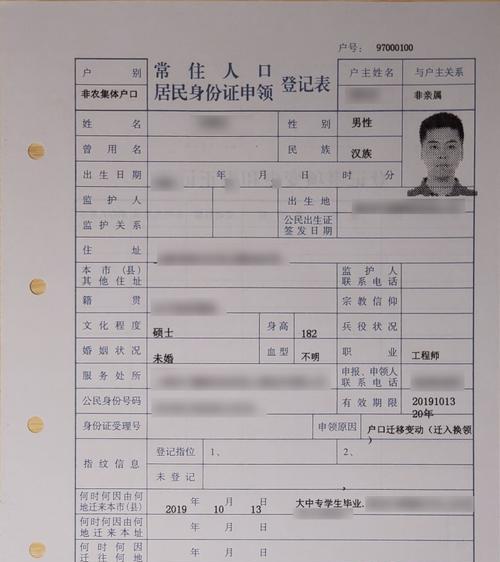 户号：97000100
户别 常住人口 登记表 户主姓名 与户主关系
非农集体户口 居民身份证申领 非亲属
姓名 性别 男性
曾用名 民族 汉族
出生日期 年 月 日 时 分
监护人 出生地
监护关系 公民出生证签发日期
住址
本市（县）其他住址 监护人联系电话
籍贯 宗教信仰
文化程度 硕士 身高 182 兵役状况
婚姻状况 未婚 血型 不明 职业 工程师
服务处所 申报、申领人联系电话
公民身份号码 有效期限 20191013
20年
身份证受理号 申领原因 户口迁移变动（迁入换领）
指纹信息 登记指位 1、 2、
未登记
何时何因由何地迁来本市(县) 2019 年 10 月 13 日 大中专学生毕业.
何时何因由何地迁来本址 年 月 日
何时何因迁往何地 年 月 日